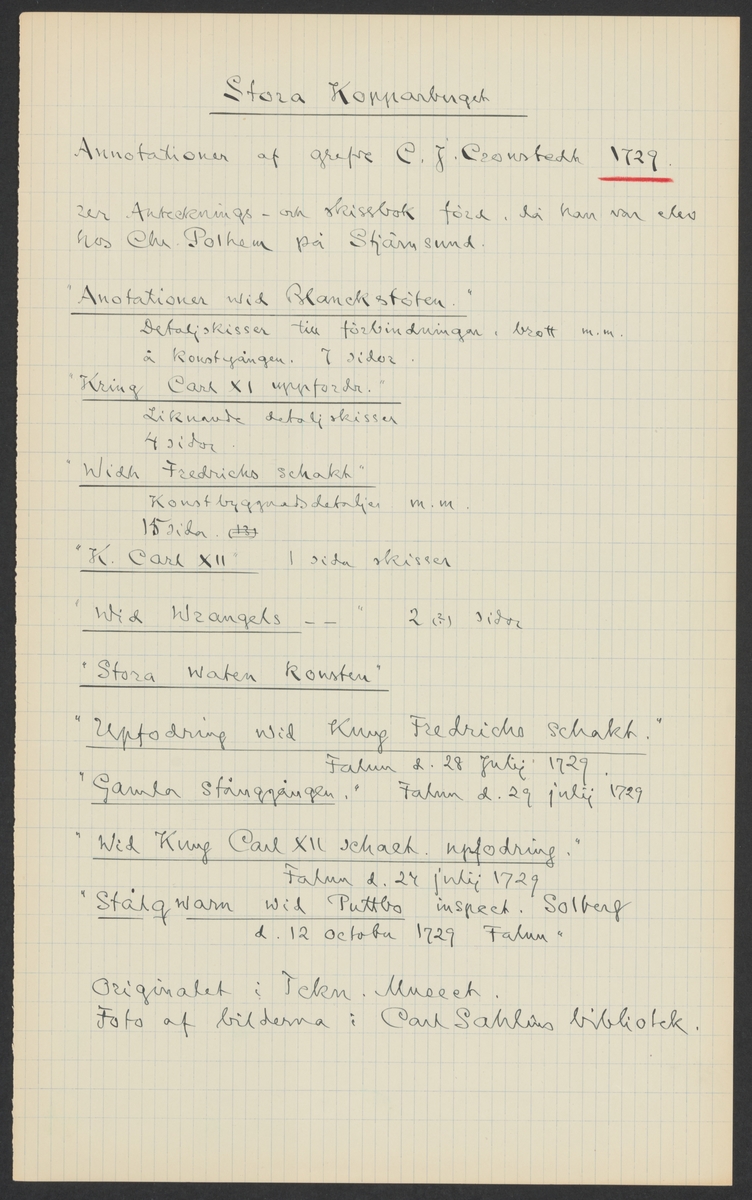 Stora Kopparberget
Annotationer af grefve C. J. Cronstedt 1729.
Antecknings- och skissbok förd, då han var elev
hos Chr. Polhem på Stjärnsund.
"Anotationer wid Blanckstöten."
Detaljskisser till förbindningar, brott m.m.
å konstgången. 7 sidor.
"Kring Carl XI uppfordr."
Liknande detaljskisser
4 sidor.
"Widh Fredrichs schakt"
Konstbyggnadsdetaljer m.m.
15 sidor. (13)
"K. Carl XII" 1 sida skisser
"Wid Wrangels -- " 2 (?) sidor
"Stora Waten Konsten"
"Upfodring wid Kung Fredrichs schakt."
Falun d. 28 Julij 1729.
"Gamla Stånggången." Falun d. 29 julij 1729
"Wid Kung Carl XII schact. upfodring."
Falun d. 24 julij 1729
"Stålqwarn wid Puttbo inspect. Solberg
d. 12 octobr 1729 Falun"
Originalet i Tekn. Museet.
Foto af bilderna i Carl Sahlins bibliotek.